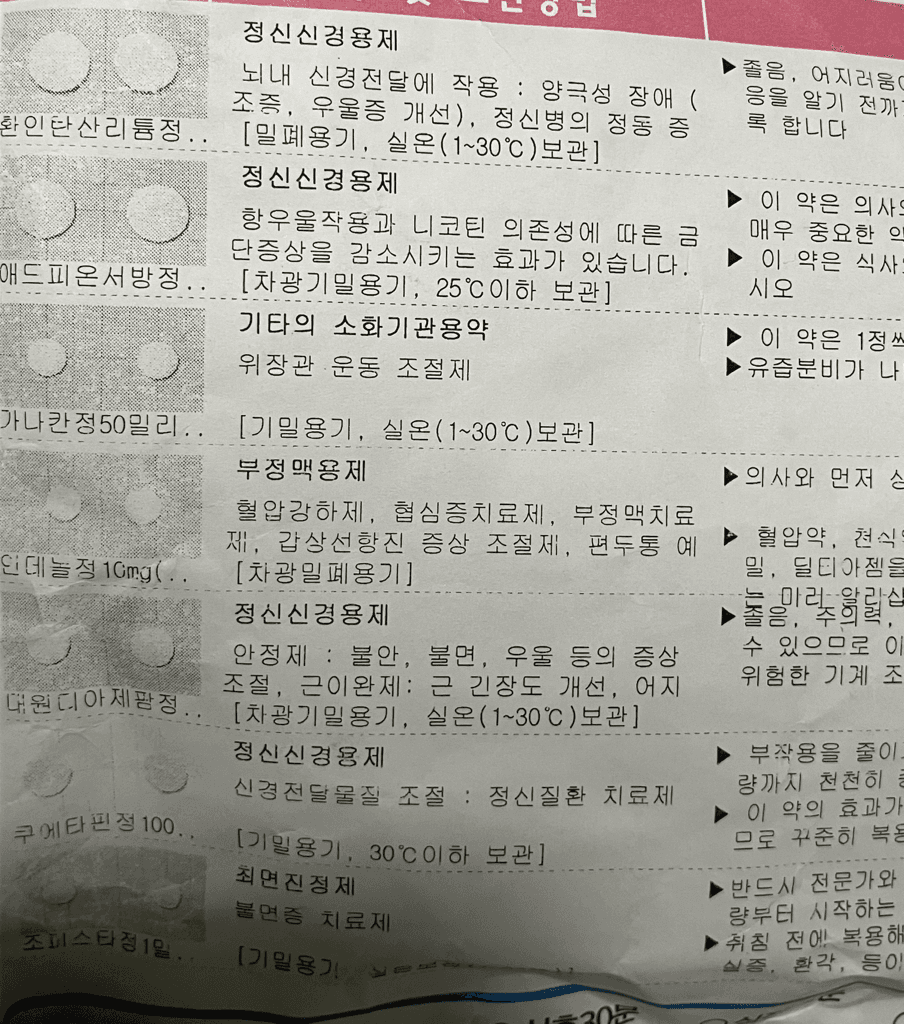 정신신경용제
뇌내 신경전달에 작용 : 양극성 장애 (
조증, 우울증 개선), 정신병의 정동 증
[밀폐용기, 실온(1~30℃)보관]
환인탄산리튬정..
▶졸음, 어지러움
응을 알기 전까
록 합니다
정신신경용제
항우울작용과 니코틴 의존성에 따른 금
단증상을 감소시키는 효과가 있습니다.
[차광기밀용기, 25℃이하 보관]
애드피온서방정..
▶ 이 약은 의사
매우 중요한
▶ 이 약은 식사
시오
기타의 소화기관용약
위장관 운동 조절제
[기밀용기, 실온(1~30℃)보관]
가나칸정50밀리..
▶ 이 약은 1정씩
▶유즙분비가 나
부정맥용제
혈압강하제, 협심증치료제, 부정맥치료
제, 갑상선항진 증상 조절제, 편두통 예
[차광밀폐용기]
인데놀정10mg(..
▶의사와 먼저 상
▶ 혈압약, 천식
밀, 딜티아젬을
는 마리 알리십
정신신경용제
안정제 : 불안, 불면, 우울 등의 증상
조절, 근이완제: 근 긴장도 개선, 어지
[차광기밀용기, 실온(1~30℃)보관]
대원디아제팜정..
▶졸음, 주의력,
수 있으므로 이
위험한 기계 조
정신신경용제
신경전달물질 조절 : 정신질환 치료제
[기밀용기, 30℃이하 보관]
쿠에타핀정100..
▶ 부작용을 줄이
량까지 천천히
▶ 이 약의 효과가
므로 꾸준히 복용
최면진정제
불면증 치료제
[기밀용기,
조피스타정1밀..
▶반드시 전문가와
량부터 시작하는
▶취침 전에 복용해
실증, 환각, 등이
30분